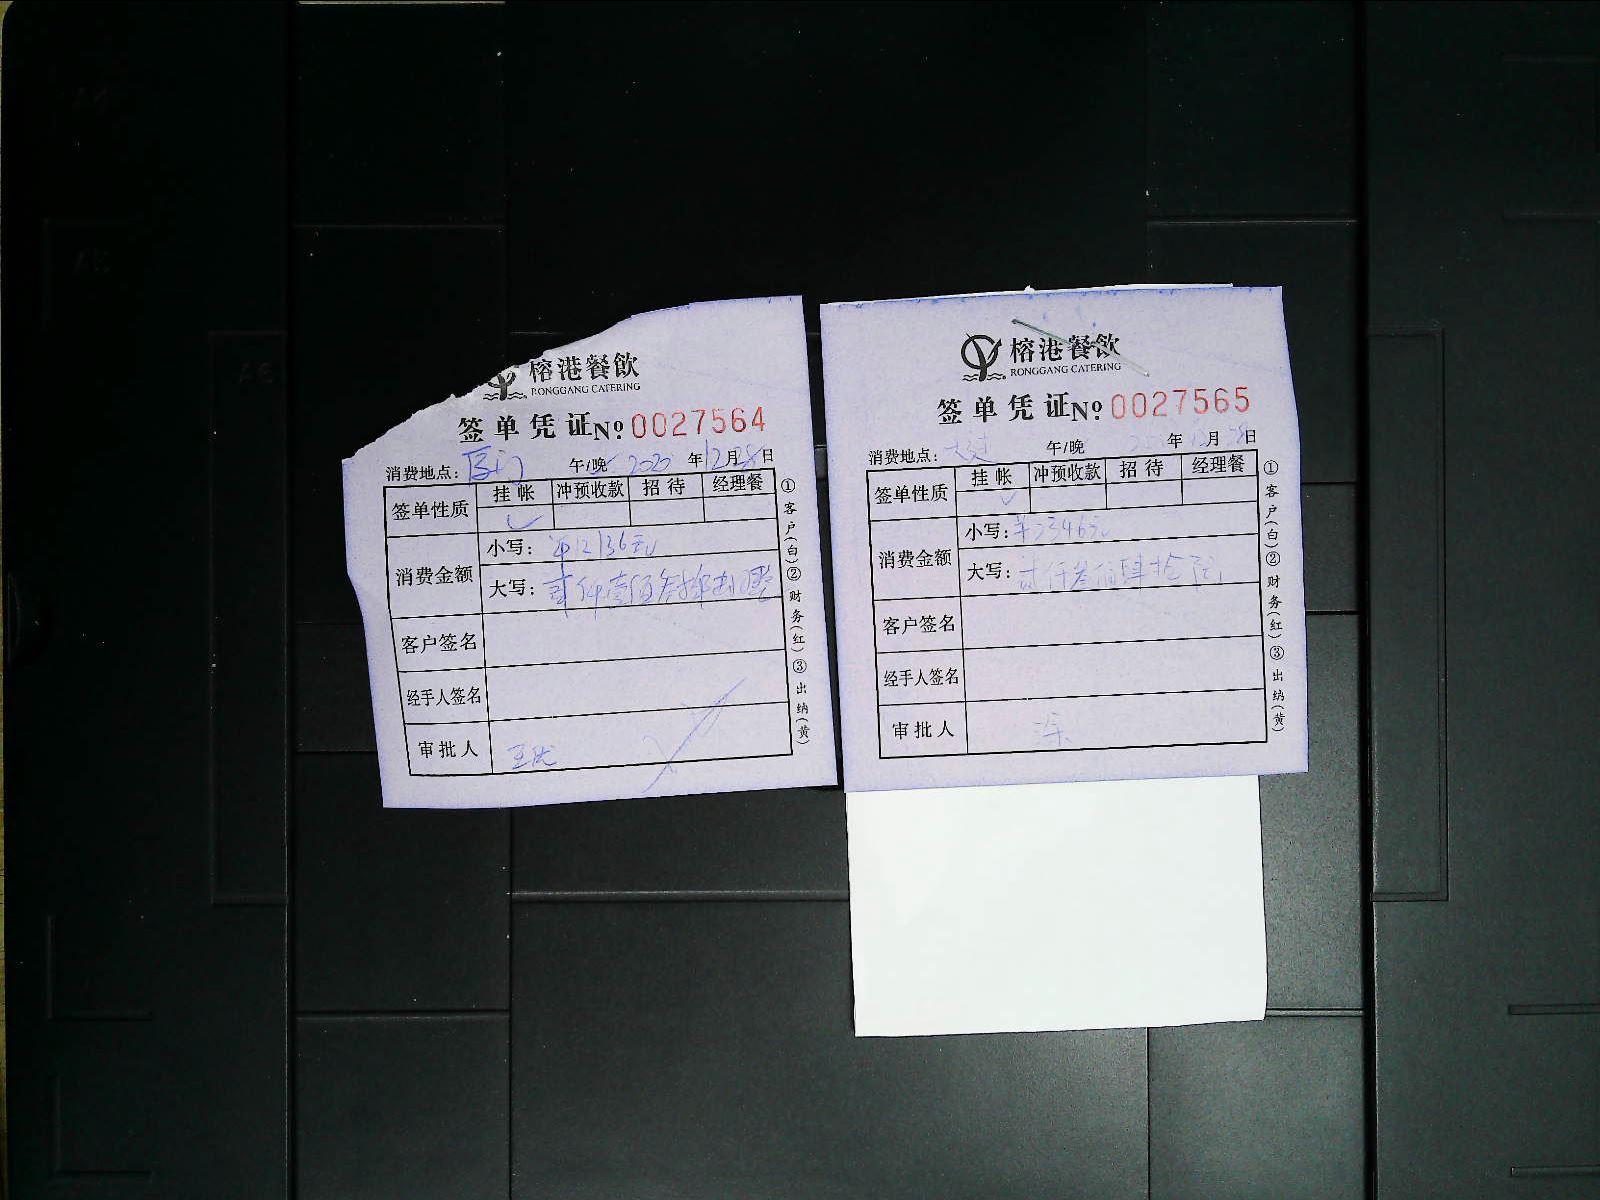 榕港餐飲
RONGGANG CATERING
签单凭证 Nº 0027564
消费地点: 午/晚 2020 年 12 月 28 日
签单性质 挂帐 冲预收款 招待 经理餐
✓
消费金额 小写: ¥2136元
大写: 贰仟壹佰叁拾
客户签名
经手人签名
审批人
①客户(白)②财务(红)③出纳(黄)
榕港餐飲
RONGGANG CATERING
签单凭证 Nº 0027565
消费地点: 午/晚 年 月 28 日
签单性质 挂帐 冲预收款 招待 经理餐
✓
消费金额 小写: ¥2346元
大写: 贰仟叁佰肆拾
客户签名
经手人签名
审批人
①客户(白)②财务(红)③出纳(黄)